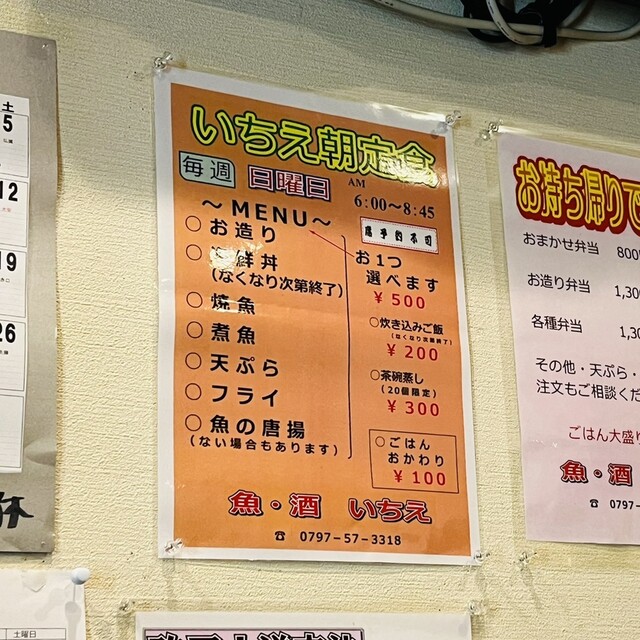 土
5
12
19
26
いちえ朝定食
毎週 日曜日 AM 6:00～8:45
～MENU～
席予約不可
○お造り
鮮丼
(なくなり次第終了)
○焼魚
○煮魚
○天ぷら
○フライ
○魚の唐揚
(ない場合もあります)
お1つ
選べます
¥500
○炊き込みご飯
(なくなり次第終了)
¥200
○茶碗蒸し
(20個限定)
¥300
○ごはん
おかわり
¥100
魚・酒 いちえ
☎ 0797-57-3318
お持ち帰りで
おまかせ弁当 800
お造り弁当 1,30
各種弁当 1,30
その他・天ぷら・
注文もご相談くだ
ごはん大盛り
魚・酒
☎ 0797-
土曜日